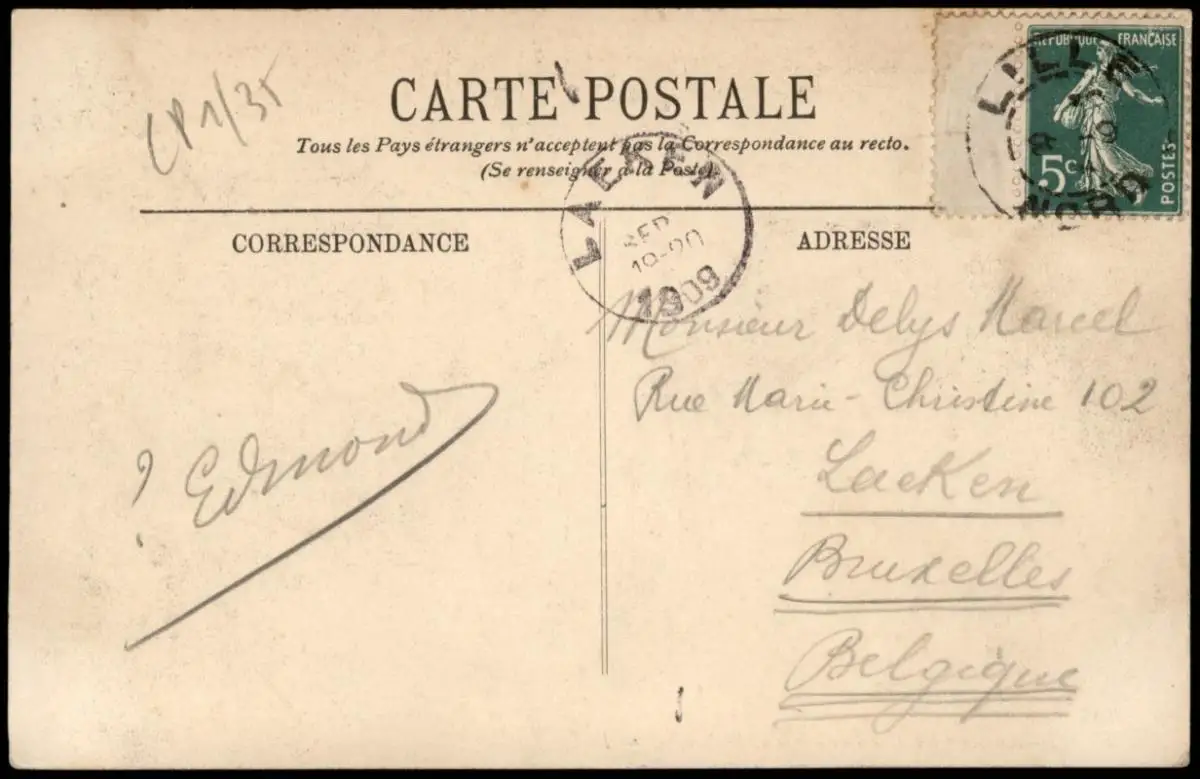 CP 1/35
CARTE POSTALE
Tous les Pays étrangers n'acceptent pas la Correspondance au recto.
(Se renseigner à la Poste).
RÉPUBLIQUE FRANÇAISE
5c
POSTES
LILLE
NORD
LAEKEN
SEP
1909
CORRESPONDANCE
ADRESSE
? Edmond
Monsieur Delys Marcel
Rue Marie-Christine 102
Laeken
Bruxelles
Belgique